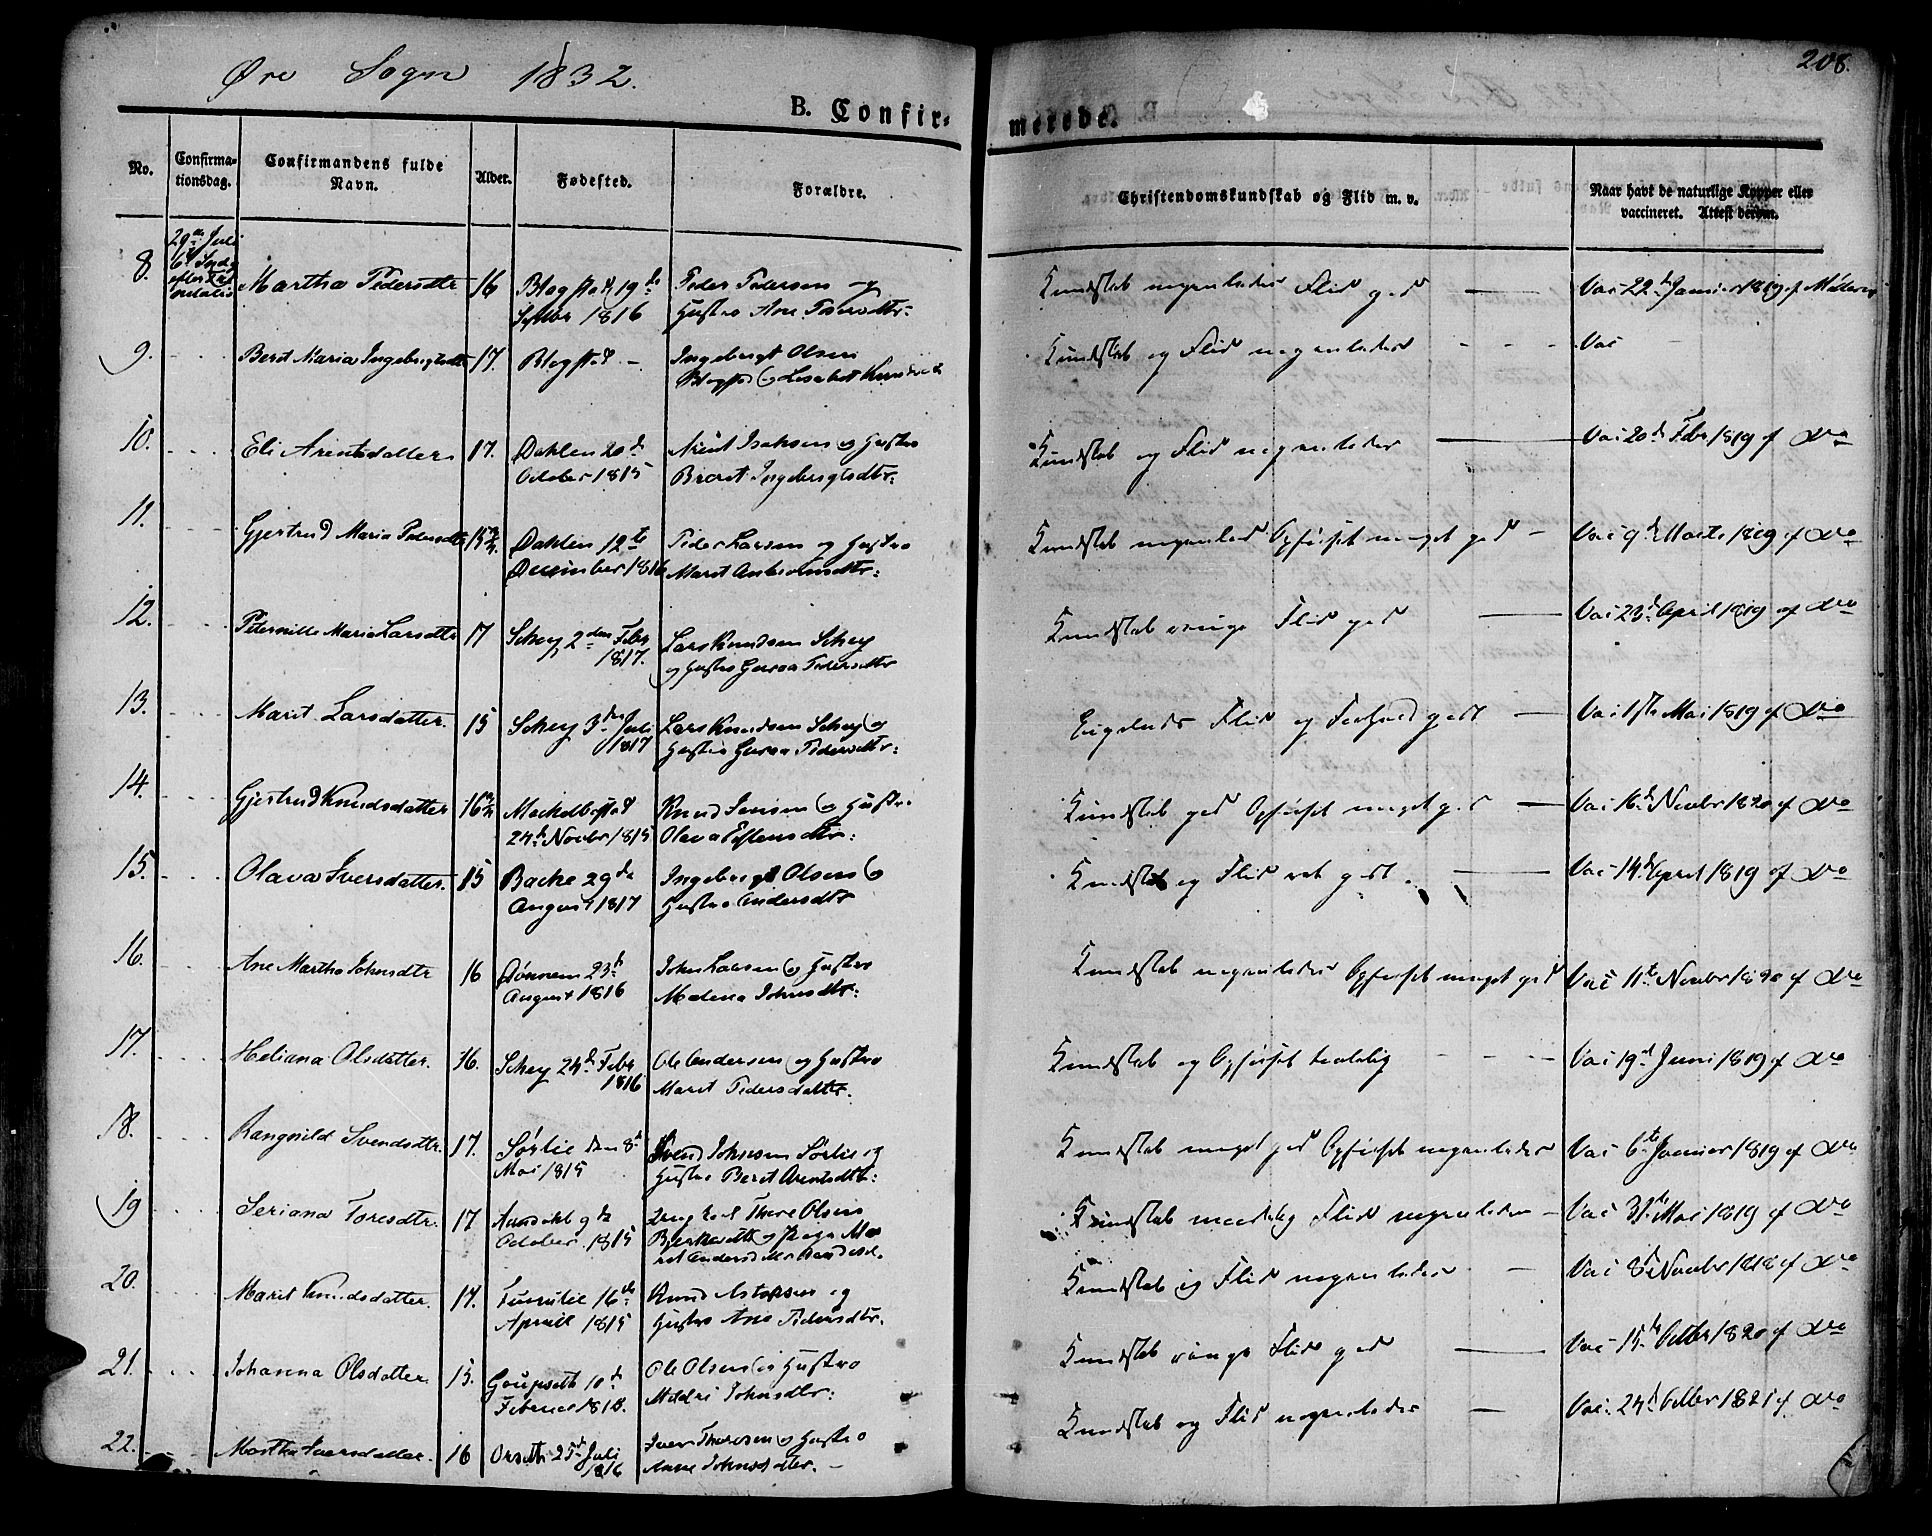 208.
Øre Sogn 1832.
B. Confirmerede.
No.
Confirmationsdag.
Confirmandens fulde Navn.
Alder.
Fødested.
Forældre.
Christendomskundskab og Flid m. v.
Naar havt de naturlige Kopper eller vaccineret. Attest derom.
8. 29de Juli Martha Pedersdtr 16 Blogstad 19de Peder Pedersen og Kundskab nogenledes Flid god Vac 22de Januar 1819 af Møller
Septbr 1816 Hustro Ane Pedersdtr.
9. Berit Maria Ingebrigtsdtr 17. Blogstad Ingebrigt Olsen Kundskab og Flid nogenledes Vac
Blogstad og Lisabet
10. Eli Arentsdatter 17. Dahlen 20de Arent Isaksen og Hustro Kundskab og Flid nogenledes Vac 20de Febr 1819 af Do
October 1815 Beret Ingebrigtsdtr.
11. Gjertrud Maria Pedersdtr Dahlen 12te Peder Larsen og Hustro Kundskab nogenled Opførsel meget god Vac 9de Marts 1819 af Do
December 1816 Marit
12. Peternille Maria Larsdtr 17 Schey 2den Febr Lars Knudsen Schey Kundskab ringe Flid god Vac 23de April 1819 af Do
1817. og Hustro Guroa Pedersdtr
13. Marit Larsdatter. 15 Schey 3de Juli Lars Knudsen Schey og Ligeledes Flid og Forhold godt Vac Mai 1819 af Do
1817 Hustro Guroa Pedersdtr:
14. Gjertrud Knudsdatter 16 Knud Iversen og Hustro Kundskab god Opførsel meget god Vac 16de Novbr 1820 af Do
24de Novbr 1815 Olava
15. Olava Iversdatter. 15 Backe 29de Ingebrigt Olsen og Kundskab og Flid ret godt. Vac 14de April 1819 af Do
August 1817 Hustro Andersdtr
16. Ane Martha Johnsdtr 16 Dønnem 23de John Larsen og Hustro Kundskab nogenledes Opførsel meget god Vac 11te Novbr 1820 af Do
August 1816 Malena Johnsdtr:
17. Heliana Olsdatter. 16. Schey 24de Febr Ole Andersen og Hustro Kundskab og Opførsel taalelig Vac 19de Juni 1819 af Do
1816 Marit Pedersdatter.
18. Rangnild Svendsdtr. 17. Sørlie den 8de Svend Johnsen Sørlie og Kundskab meget god Opførsel nogenledes Vac 6te Januar 1819 af Do
Mai 1815 Hustro Beret Arentsdtr:
19 Seriana Toresdtr. 17 9de Thore Olsen Kundskab maadelig Flid nogenledes Vac 31te Mai 1819 af Do
October 1815
20. Marit Knudsdatter. 17. Furulie 16de Knud og Kundskab og Flid nogenledes Vac 8de Novbr 1818 af Do
Aprill 1815 Hustro Ane Pedersdtr.
21. Johanna Olsdatter. 15. 10de Ole Olsen og Hustro Kundskab ringe Flid god Vac 15de Octbr 1820 af Do
Mildri Johnsdtr:
22. Martha Iversdatter. 16 Orset 25de Juli Iver Thoresen og Hustro Kundskab og Flid nogenledes Vac. 24de Octbr 1821 af Do
1816 Anne Johnsdtr.